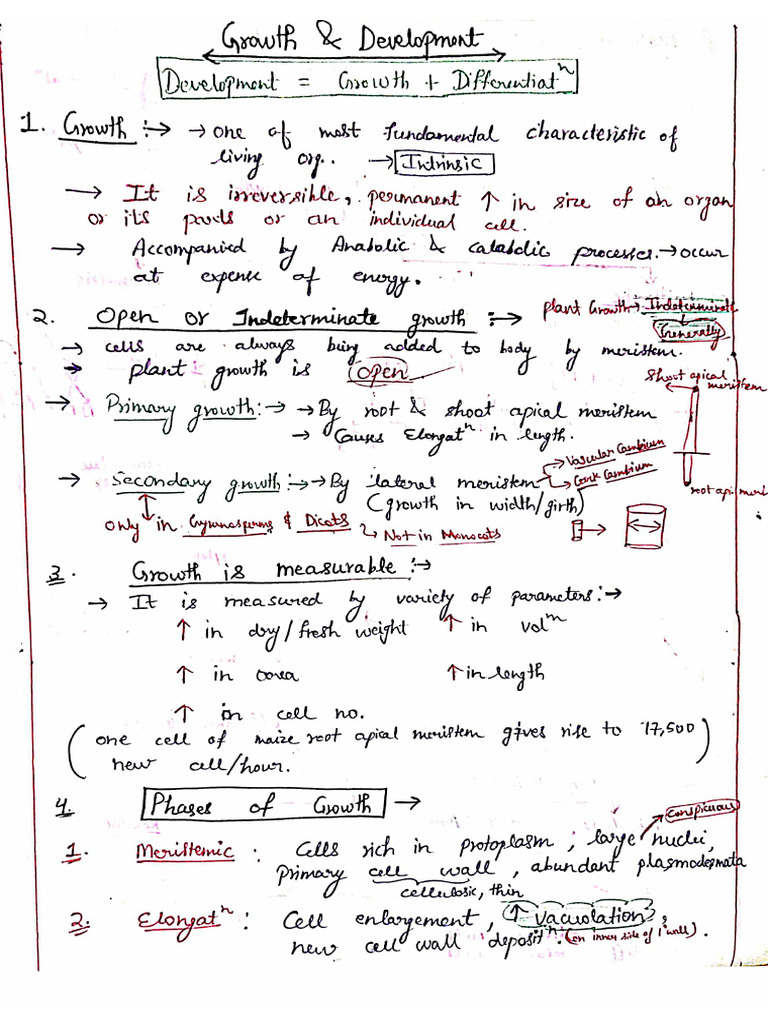 Growth & Development
Development = Growth + Differentiatⁿ
1. Growth :→ → one of most fundamental characteristic of
living org.. → Intrinsic
→ It is irreversible, permanent ↑ in size of an organ
or its parts or an individual cell.
→ Accompanied by Anabolic & catabolic processes. → occur
at expense of energy.
2. Open or Indeterminate growth :→ plant Growth → Indeterminate
Generally
→ cells are always being added to body by meristem.
→ plant growth is open
shoot apical
meristem
→ Primary growth :→ → By root & shoot apical meristem
→ Causes Elongatⁿ in length.
→ Vascular Cambium
→ Secondary growth :→ → By lateral meristem → Cork Cambium
(growth in width/girth)
root api. meri
only in Gymnosperms & Dicots → Not in Monocots
3. Growth is measurable :→
→ It is measured by variety of parameters :→
↑ in dry/fresh weight ↑ in volᵐ
↑ in area ↑ in length
↑ in cell no.
(one cell of maize root apical meristem gives rise to 17,500
new cell/hour.)
4. Phases of Growth →
conspicuous
1. Meristemic : Cells rich in protoplasm, large nuclei,
primary cell wall, abundant plasmodesmata
cellulosic, thin
2. Elongatⁿ : Cell enlargement, ↑ vacuolation,
new cell wall depositⁿ. (on inner side of 1° wall).